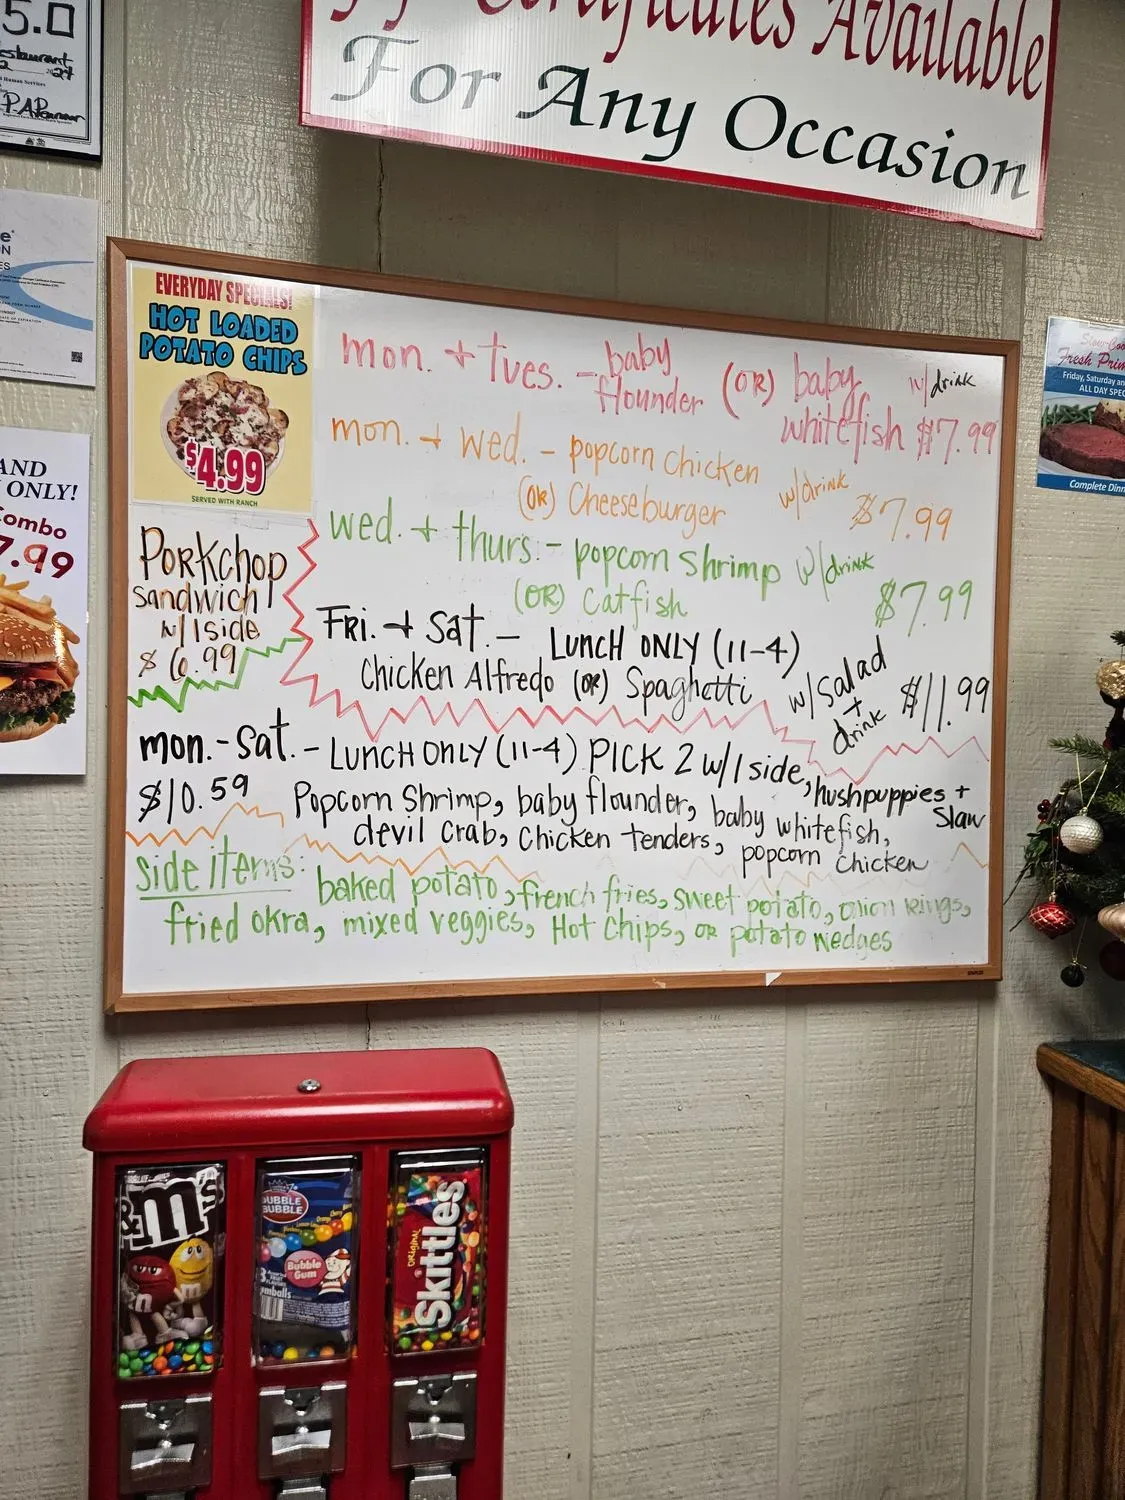 Certificates Available
For Any Occasion
5.0
estaurant
EVERYDAY SPECIALS!
HOT LOADED
POTATO CHIPS
$4.99
SERVED WITH RANCH
mon. + tues. - baby flounder (OR) baby whitefish w/drink $7.99
mon. + wed. - popcorn chicken
(OR) Cheeseburger w/drink $7.99
wed. + thurs. - popcorn shrimp w/drink
(OR) Catfish $7.99
FRI. + Sat. - LUNCH ONLY (11-4)
Chicken Alfredo (OR) Spaghetti w/Salad + drink $11.99
PORKChop
Sandwich
w/1side
$6.99
mon. - sat. - LUNCH ONLY (11-4) PICK 2 w/1 side, hushpuppies + Slaw
$10.59
Popcorn Shrimp, baby flounder, baby whitefish,
devil crab, Chicken tenders, popcorn chicken
Side items: baked potato, french fries, sweet potato, onion rings,
fried okra, mixed veggies, Hot Chips, OR potato wedges
STAPLES
AND
ONLY!
Combo
7.99
Slow-Coo
Fresh Prim
Friday, Saturday an
ALL DAY SPEC
Complete Dinn
m&m's
DUBBLE
BUBBLE
Bubble
Gum
ORIGINAL
Skittles